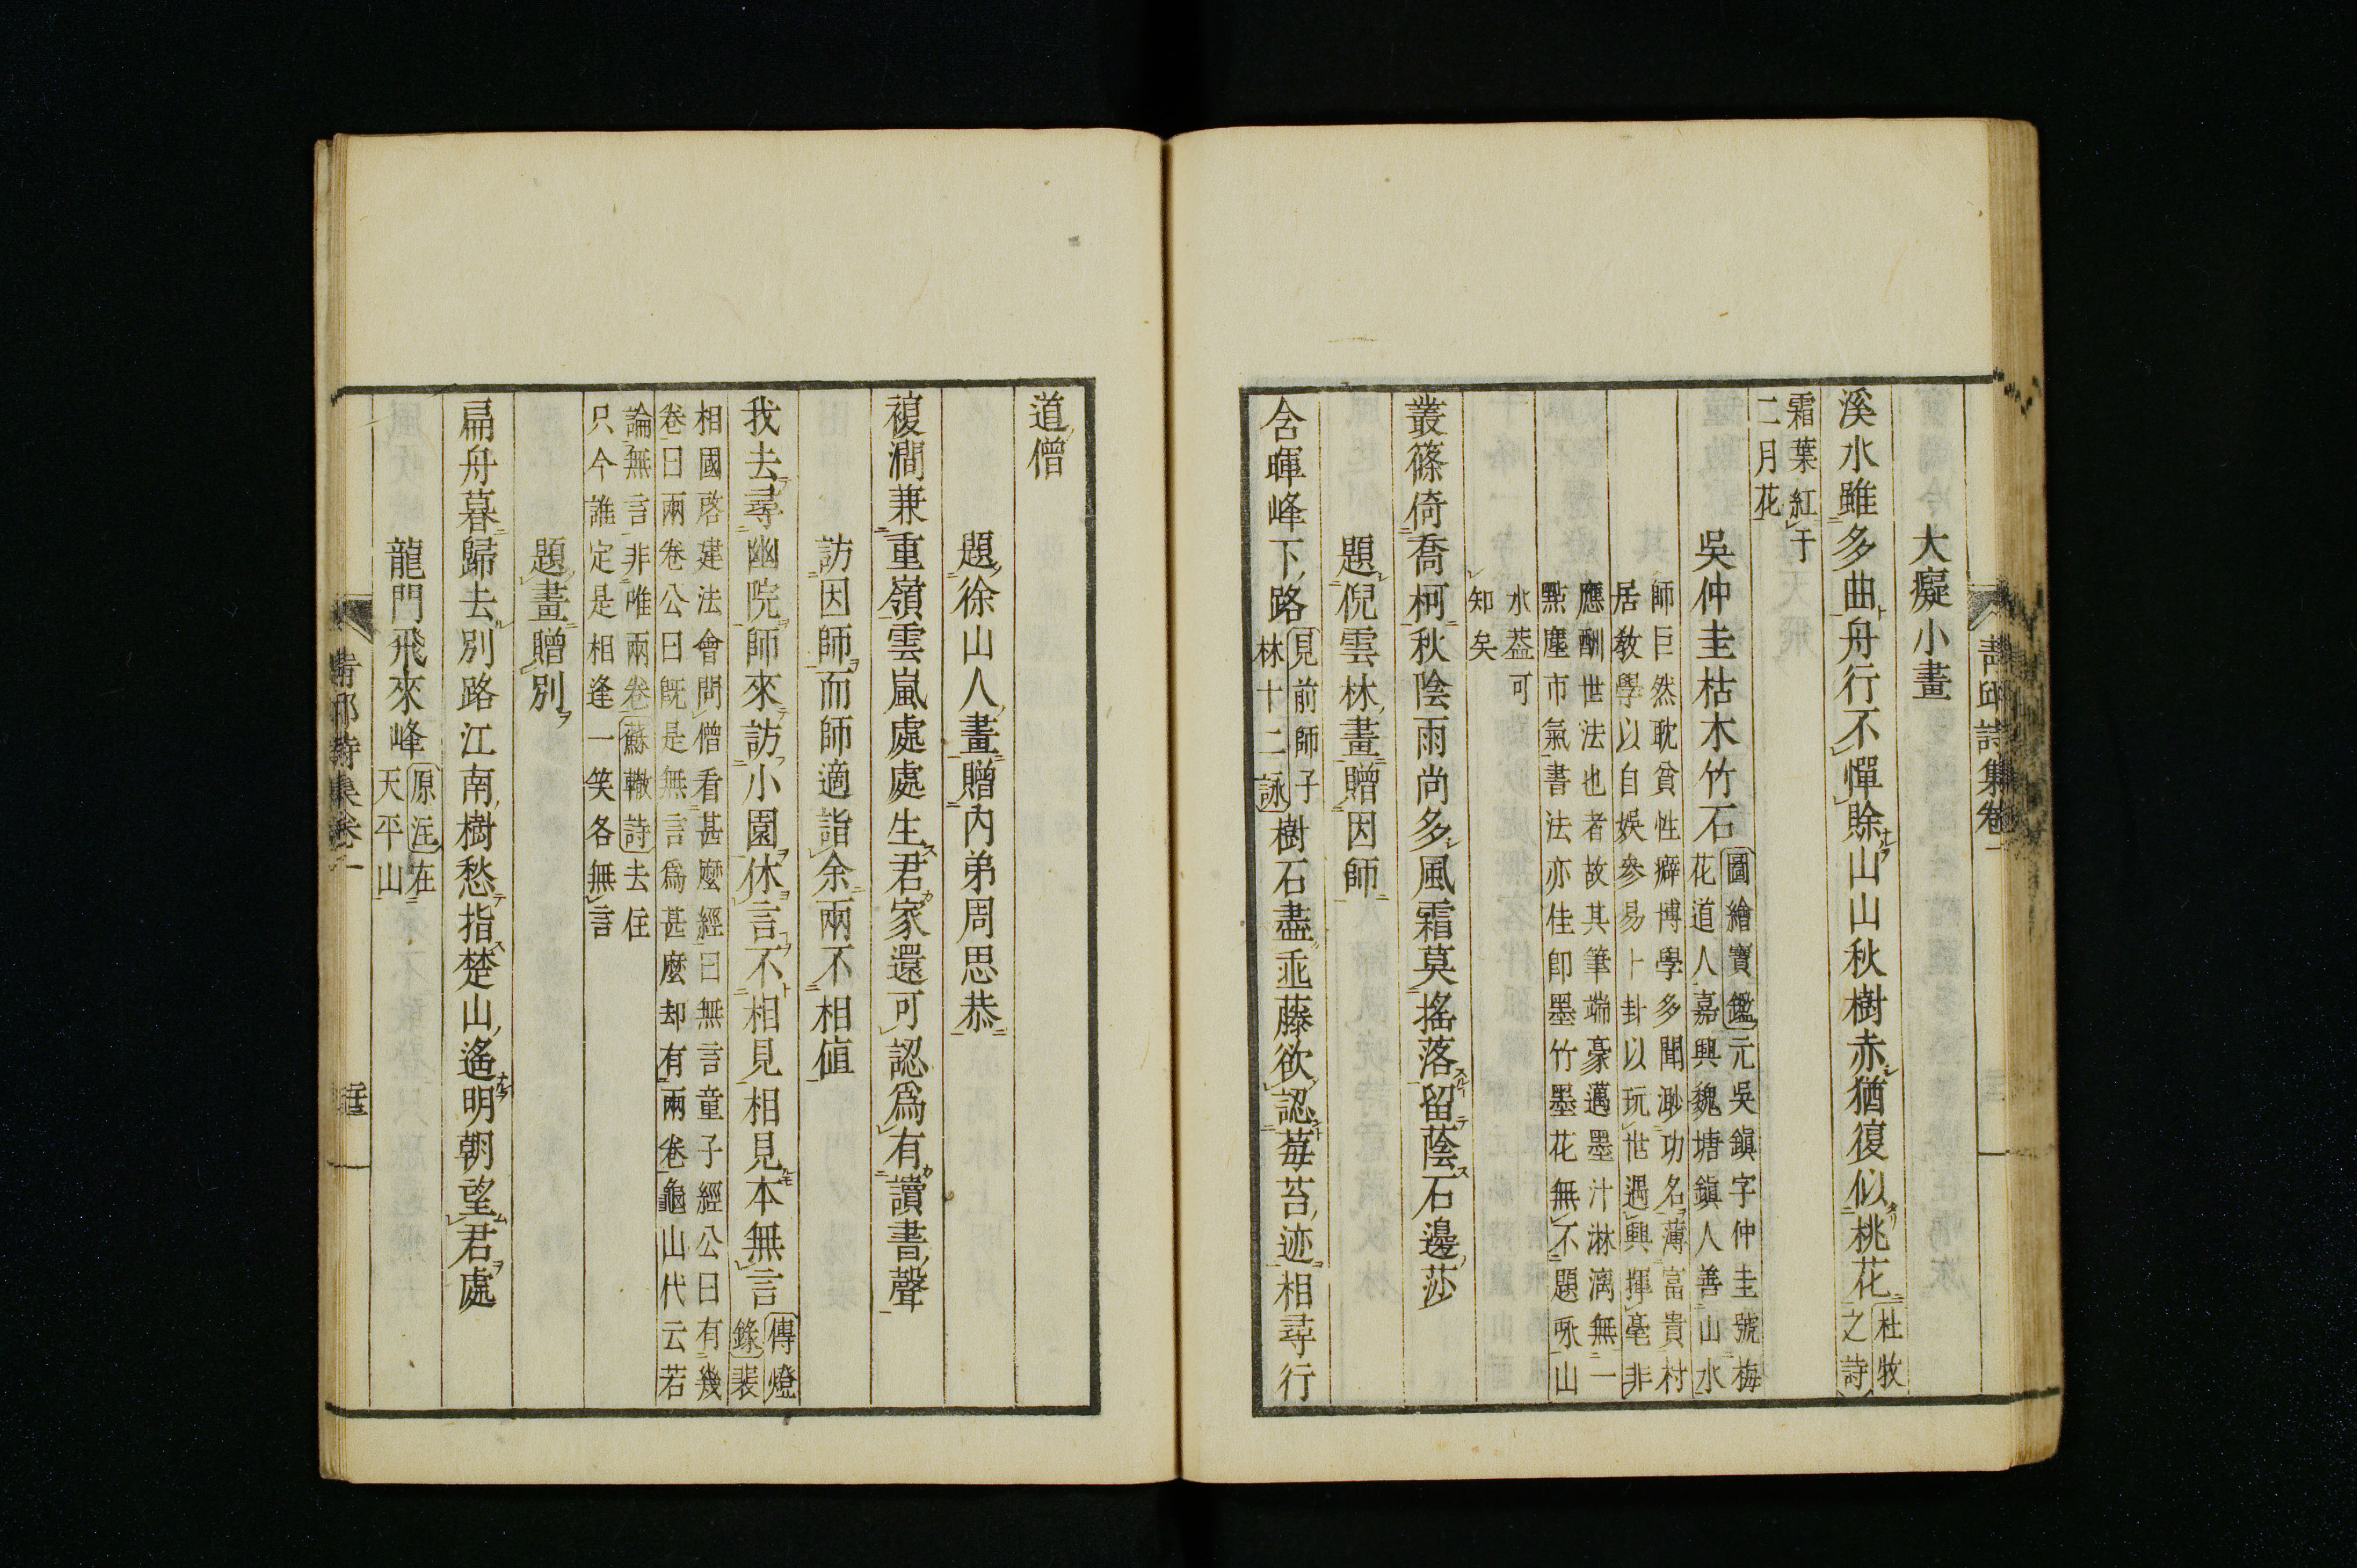 大癡小畫
溪水雖多曲舟行不憚賒山山秋樹赤猶復似桃花
杜牧
之詩
霜葉紅于
二月花
吳仲圭枯木竹石
圖繪寶鑑元吳鎮字仲圭號梅
花道人嘉興魏塘鎮人善山水
師巨然耽貧性癖博學多聞渺功名薄富貴村
居教學以自娛參易卜卦以玩世遇興揮毫非
應酬世法也者故其筆端豪邁墨汁淋漓無一
點塵市氣書法亦佳即墨竹墨花無不題咏山
水葢可
知矣
叢篠倚喬柯秋陰雨尚多風霜莫搖落留蔭石邊莎
題倪雲林畫贈因師
含暉峰下路
見前師子
林十二詠
樹石盡垂藤欲認莓苔迹相尋行
道僧
題徐山人畫贈內弟周思恭
複澗兼重嶺雲嵐處處生君家還可認爲有讀書聲
訪因師而師適詣余兩不相値
我去尋幽院師來訪小園休言不相見相見本無言
傳燈
錄裴
相國啓建法會問僧看甚麼經曰無言童子經公曰有幾
卷曰兩卷公曰旣是無言爲甚麼却有兩卷龜山代云若
論無言非唯兩卷蘇轍詩去住
只今誰定是相逢一笑各無言
題畫贈別
扁舟暮歸去別路江南樹愁指楚山遙明朝望君處
龍門飛來峰
原注在
天平山
青邱詩集卷一
青邱詩集卷一